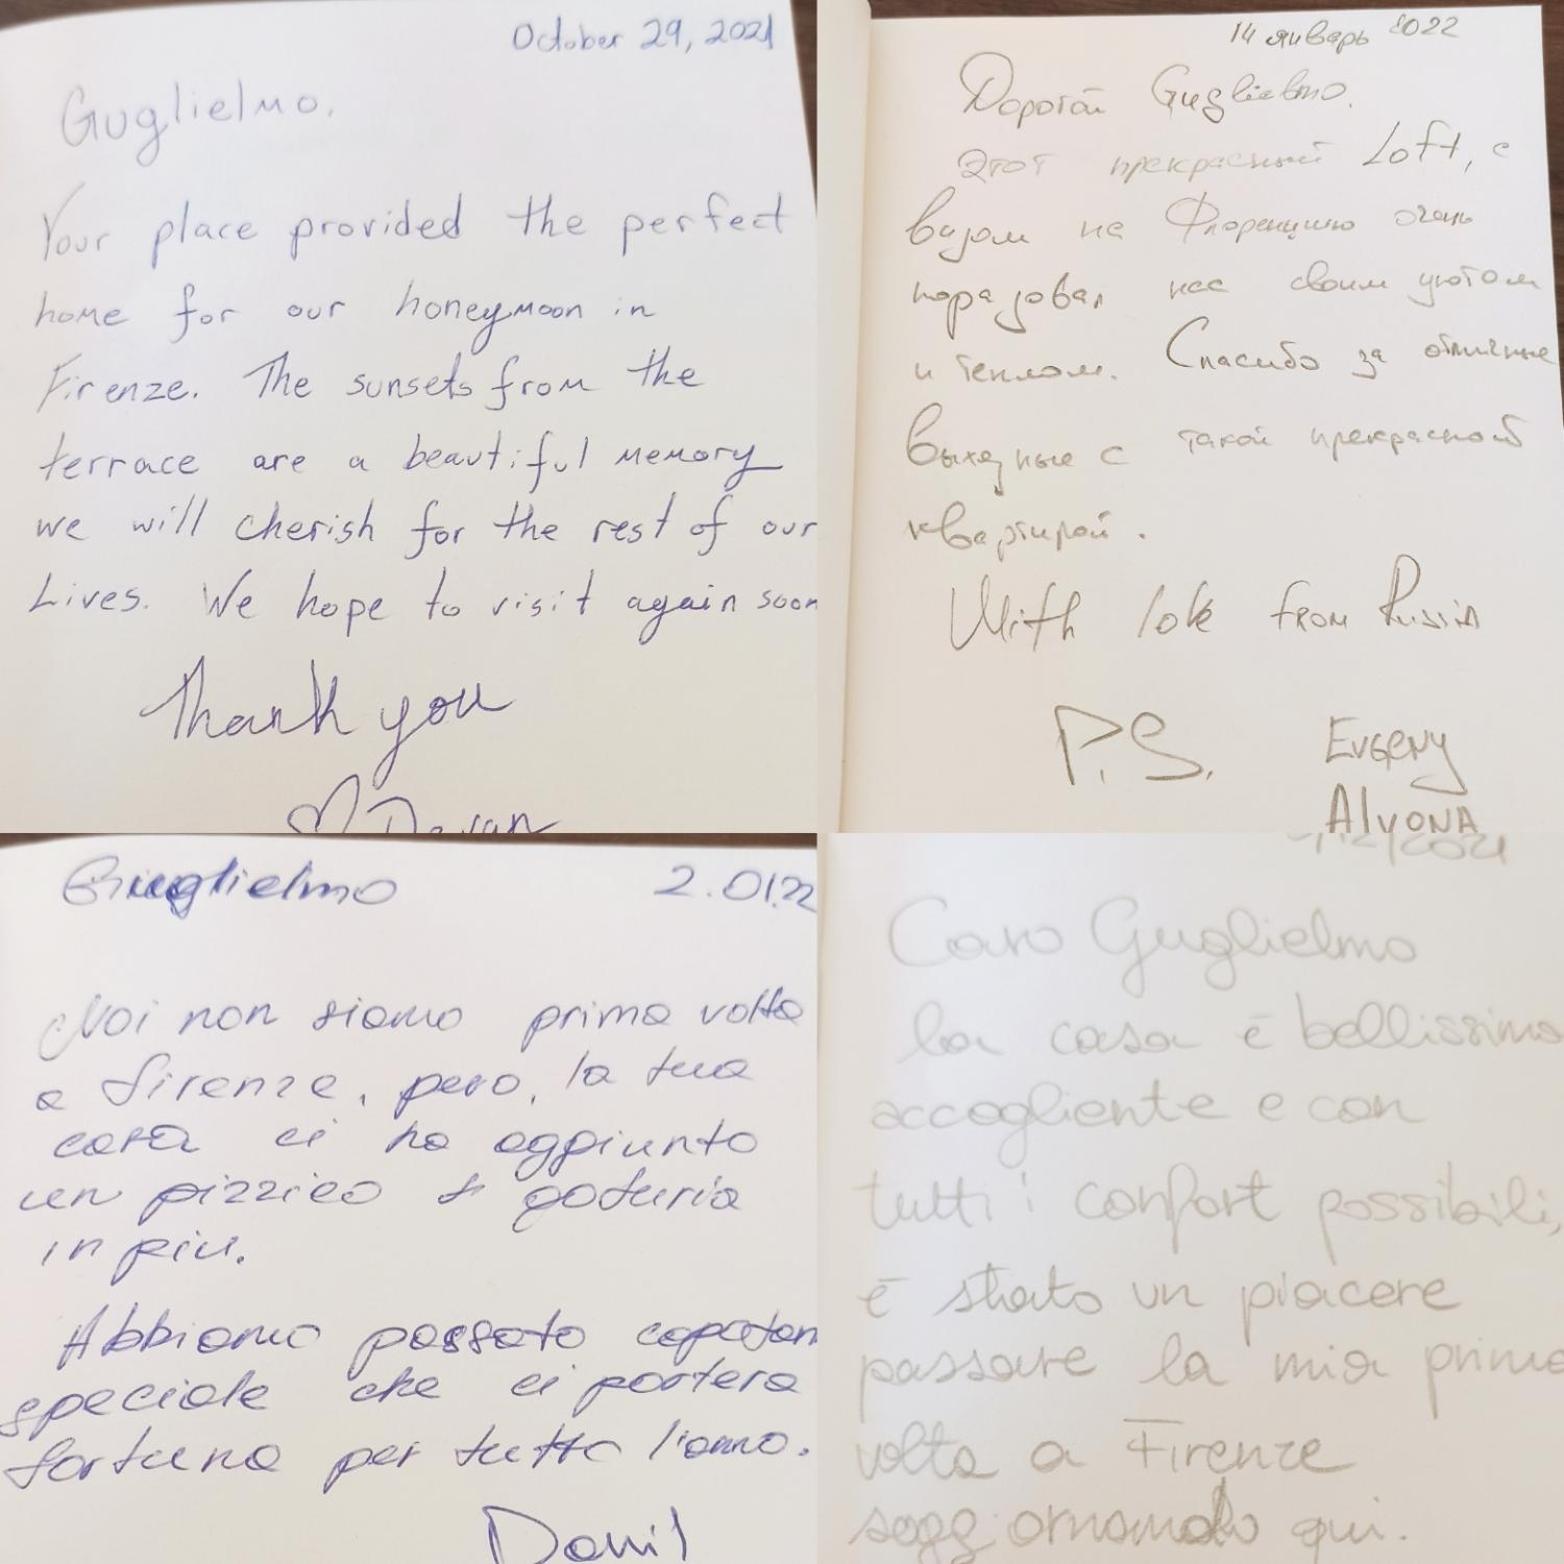 October 29, 2021
Guglielmo.
Your place provided the perfect
home for our honeymoon in
Firenze. The sunsets from the
terrace are a beautiful memory
we will cherish for the rest of our
Lives. We hope to visit again soon
Thank you
14 январь 2022
Дорогой Guglielmo.
Этот прекрасный Loft, с
видом на Флоренцию очень
порадовал нас своим уютом
и теплом. Спасибо за отличные
выходные с такой прекрасной
квартирой.
With love from Russia
P.S. Evgeny
Alyona
Guglielmo 2.01.22
Noi non siamo prima volta
a Firenze, pero, la tua
casa ci ha aggiunto
un pizzico di goduria
in piu.
Abbiamo passato capodan
speciale che ci portera
fortuna per tutto l'anno.
Danil
Caro Guglielmo
la casa è bellissima
accogliente e con
tutti i confort possibili,
è stato un piacere
passare la mia prima
volta a Firenze
soggiornando qui.